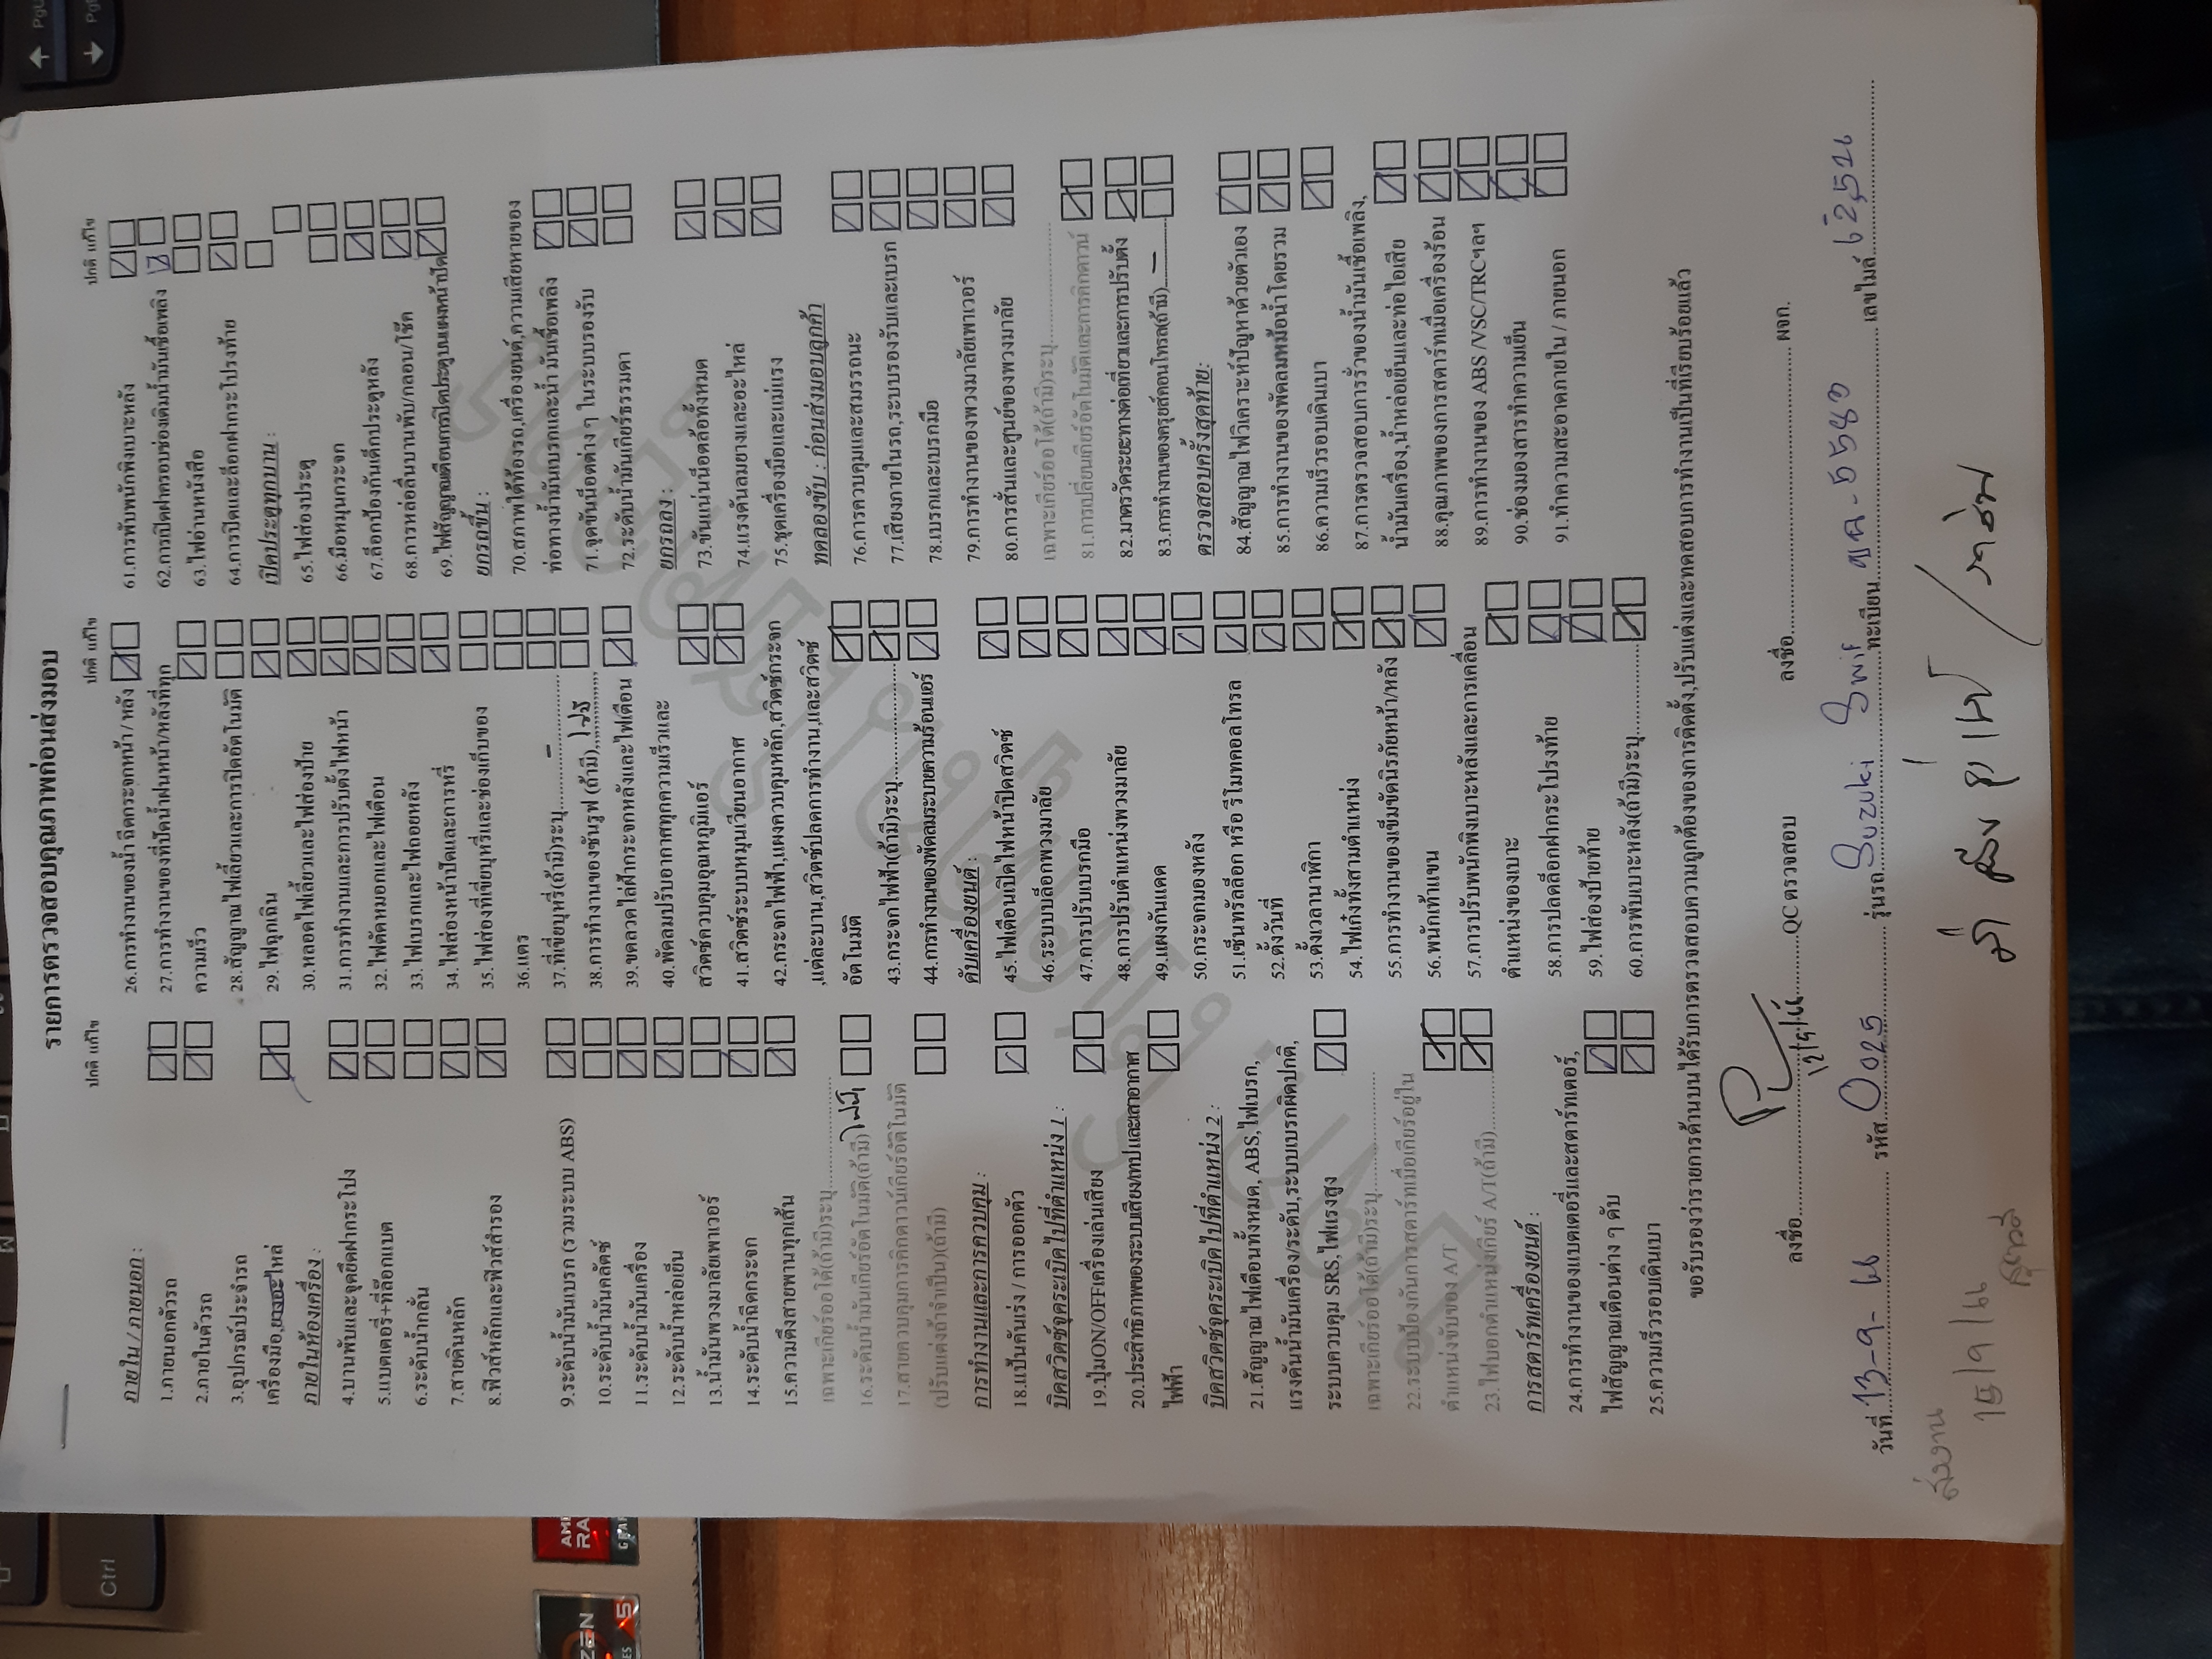 รายการตรวจสอบคุณภาพก่อนส่งมอบ
ปกติ แก้ไข
ภายใน / ภายนอก :
1.ภายนอกตัวรถ
2.ภายในตัวรถ
3.อุปกรณ์ประจำรถ
เครื่องมือ,ยางอะไหล่
ภายในห้องเครื่อง :
4.บานพับและจุดยึดฝากระโปง
5.แบตเตอรี่+ที่ล็อกแบต
6.ระดับน้ำกลั่น
7.สายดินหลัก
8.ฟิวส์หลักและฟิวส์สำรอง
9.ระดับน้ำมันเบรก (รวมระบบ ABS)
10.ระดับน้ำมันคลัตช์
11.ระดับน้ำมันเครื่อง
12.ระดับน้ำหล่อเย็น
13.น้ำมันพวงมาลัยเพาเวอร์
14.ระดับน้ำฉีดกระจก
15.ความตึงสายพานทุกเส้น
เฉพาะเกียร์ออโต้(ถ้ามี)ระบุ
16.ระดับน้ำมันเกียร์อัตโนมัติ(ถ้ามี)
17.สายควบคุมการคิกดาวน์เกียร์อัติโนมัติ
(ปรับแต่งถ้าจำเป็น)(ถ้ามี)
การทำงานและการควบคุม :
18.แป้นคันเร่ง / การออกตัว
บิดสวิตซ์จุดระเบิดไปที่ตำแหน่ง 1 :
19.ปุ่มON/OFFเครื่องเล่นเสียง
20.ประสิทธิภาพของระบบเสียง/เทปและเสาอากาศ
ไฟฟ้า
บิดสวิตซ์จุดระเบิดไปที่ตำแหน่ง 2 :
21.สัญญาณไฟเตือนทั้งหมด, ABS,ไฟเบรก,
แรงดันน้ำมันเครื่อง/ระดับ,ระบบเบรกผิดปกติ,
ระบบควบคุม SRS,ไฟแรงสูง
เฉพาะเกียร์ออโต้(ถ้ามี)ระบุ
22.ระบบป้องกันการสตาร์ทเมื่อเกียร์อยู่ใน
ตำแหน่งขับของ A/T
23.ไฟบอกตำแหน่งเกียร์ A/T(ถ้ามี)
การสตาร์ทเครื่องยนต์ :
24.การทำงานของแบตเตอรี่และสตาร์ทเตอร์,
ไฟสัญญาณเตือนต่าง ๆ ดับ
25.ความเร็วรอบเดินเบา
ปกติ แก้ไข
26.การทำงานของน้ำฉีดกระจกหน้า / หลัง
27.การทำงานของที่ปัดน้ำฝนหน้า/หลังที่ทุก
ความเร็ว
28.สัญญาณไฟเลี้ยวและการปิดอัตโนมัติ
29.ไฟฉุกเฉิน
30.หลอดไฟเลี้ยวและไฟส่องป้าย
31.การทำงานและการปรับตั้งไฟหน้า
32.ไฟตัดหมอกและไฟเตือน
33.ไฟเบรกและไฟถอยหลัง
34.ไฟส่องหน้าปัดและการหรี่
35.ไฟส่องที่เขี่ยบุหรี่และช่องเก็บของ
36.แตร
37.ที่เขี่ยบุหรี่(ถ้ามี)ระบุ –
38.การทำงานของซันรูฟ (ถ้ามี)
39.ขดลวดไล่ฝ้ากระจกหลังและไฟเตือน
40.พัดลมปรับอากาศทุกความเร็วและ
สวิตซ์ควบคุมอุณหภูมิแอร์
41.สวิตซ์ระบบหมุนเวียนอากาศ
42.กระจกไฟฟ้า,แผงควบคุมหลัก,สวิตซ์กระจก
,แต่ละบาน,สวิตซ์ปลดการทำงาน,และสวิตซ์
อัตโนมัติ
43.กระจกไฟฟ้า(ถ้ามี)ระบุ
44.การทำงานของพัดลมระบายความร้อนแอร์
ดับเครื่องยนต์ :
45.ไฟเตือนเปิดไฟหน้าปิดสวิตซ์
46.ระบบบล็อกพวงมาลัย
47.การปรับเบรกมือ
48.การปรับตำแหน่งพวงมาลัย
49.แผงกันแดด
50.กระจกมองหลัง
51.เซ็นทรัลล็อก หรือ รีโมทคอลโทรล
52.ตั้งวันที่
53.ตั้งเวลานาฬิกา
54.ไฟเก๋งทั้งสามตำแหน่ง
55.การทำงานของเข็มขัดนิรภัยหน้า/หลัง
56.พนักเท้าแขน
57.การปรับพนักพิงเบาะหลังและการเคลื่อน
ตำแหน่งของเบาะ
58.การปลดล็อกฝากระโปรงท้าย
59.ไฟส่องป้ายท้าย
60.การพับเบาะหลัง(ถ้ามี)ระบุ
ปกติ แก้ไข
61.การพับพนักพิงเบาะหลัง
62.การเปิดฝาครอบช่องเติมน้ำมันเชื้อเพลิง
63.ไฟอ่านหนังสือ
64.การปิดและล็อกฝากระโปรงท้าย
เปิดประตูทุกบาน :
65.ไฟส่องประตู
66.มือหมุนกระจก
67.ล็อกป้องกันเด็กประตูหลัง
68.การหล่อลื่นบานพับ/กลอน/โช๊ค
69.ไฟสัญญาณเตือนการปิดประตูบนแผงหน้าปัด
ยกรถขึ้น :
70.สภาพใต้ท้องรถ,เครื่องยนต์,ความเสียหายของ
ท่อทางน้ำมันเบรกและน้ำ มันเชื้อเพลิง
71.จุดขันน็อตต่าง ๆ ในระบบรองรับ
72.ระดับน้ำมันเกียร์ธรรมดา
ยกรถลง :
73.ขันแน่นน็อตล้อทั้งหมด
74.แรงดันลมยางและอะไหล่
75.ชุดเครื่องมือและแม่แรง
ทดลองขับ : ก่อนส่งมอบลูกค้า
76.การควบคุมและสมรรถนะ
77.เสียงภายในรถ,ระบบรองรับและเบรก
78.เบรกและเบรกมือ
79.การทำงานของพวงมาลัยเพาเวอร์
80.การสั่นและศูนย์ของพวงมาลัย
เฉพาะเกียร์ออโต้(ถ้ามี)ระบุ
81.การเปลี่ยนเกียร์อัตโนมัติและการคิกดาวน์
82.มาตรวัดระยะทางต่อเที่ยวและการปรับตั้ง
83.การทำงานของครุยส์คอนโทรล(ถ้ามี) –
ตรวจสอบครั้งสุดท้าย:
84.สัญญาณไฟวิเคราะห์ปัญหาด้วยตัวเอง
85.การทำงานของพัดลมหม้อน้ำโดยรวม
86.ความเร็วรอบเดินเบา
87.การตรวจสอบการรั่วของน้ำมันเชื้อเพลิง,
น้ำมันเครื่อง,น้ำหล่อเย็นและท่อไอเสีย
88.คุณภาพของการสตาร์ทเมื่อเครื่องร้อน
89.การทำงานของ ABS /VSC/TRCฯลฯ
90.ช่องมองสารทำความเย็น
91.ทำความสะอาดภายใน / ภายนอก
ขอรับรองว่ารายการด้านบนได้รับการตรวจสอบความถูกต้องของการติดตั้ง,ปรับแต่งและทดสอบการทำงานเป็นที่เรียบร้อยแล้ว
ลงชื่อ QC ตรวจสอบ ลงชื่อ ผจก.
12/9/66
วันที่ 13-9-66 รหัส 0025 รุ่นรถ Suzuki Swif ทะเบียน 5580 เลขไมล์ 62,526
ส่งงาน
15/9/66